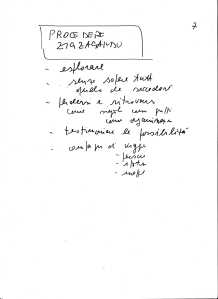 7
PROCEDERE
ZIGZAGANDO
- esplorare
- senza sapere tutto
quello che succederà
- perdersi e ritrovarsi
come singoli come gruppo
come organizzazione
- testimoniare le possibilità
- compagni di viaggio